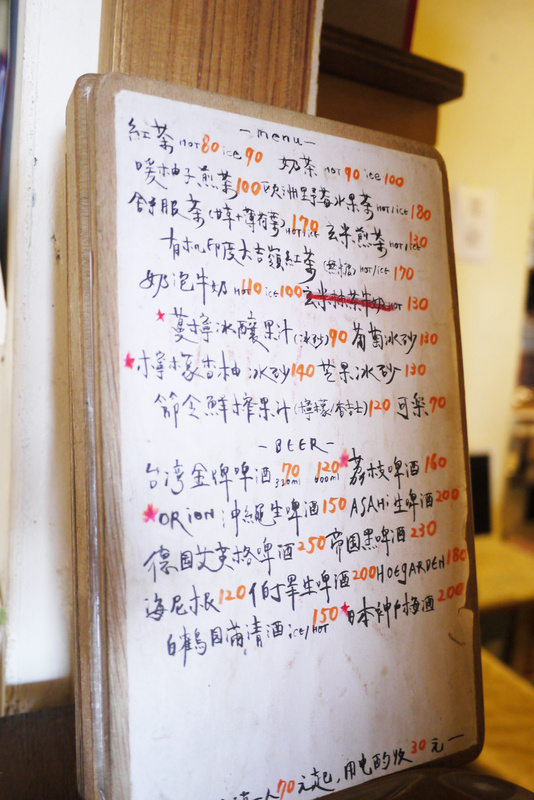 - menu -
紅茶 HOT 80 ice 90 奶茶 HOT 90 ice 100
暖柚子煎茶 100 歐洲野莓水果茶 HOT/ice 180
舒服茶 (甘草+薄荷葉) 170 HOT/ice 玄米煎茶 HOT/ice 130
有机印度大吉嶺紅茶 (無糖) HOT/ice 170
奶泡牛奶 HOT 110 ice 100 玄米抹茶牛奶 HOT 130
蔓檸冰釀果汁 (冰砂) 90 葡萄冰砂 130
檸檬香柚冰砂 140 芒果冰砂 130
節令鮮搾果汁 (檸檬/香吉士) 120 可樂 70
- BEER -
台湾金牌啤酒 70 320ml 120 600ml 荔枝啤酒 160
ORION 沖繩生啤酒 150 ASAHi 生啤酒 200
德国艾英格啤酒 250 帝国黑啤酒 230
海尼根 120 伯畢生啤酒 200 HOEGARDEN 180
白鶴国滿清酒 ice/HOT 150 日本神戶梅酒 200
一人 70 元起, 用电酌收 30 元 —